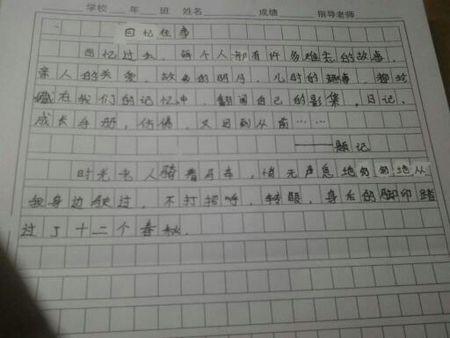 学校 年 班 姓名 成绩 指导老师
回忆往事
回忆过去，每个人都有许多难忘的故事，
亲人的关爱，故乡的明月，儿时的趣事，都珍
藏在我们的记忆中，翻阅自己的影集，日记，
成长手册，仿佛，又回到从前……
——题记
时光老人骑着单车，悄无声息地匆匆地从
我身边驶过，不打招呼，转眼，身后的脚印踏
过了十二个春秋．